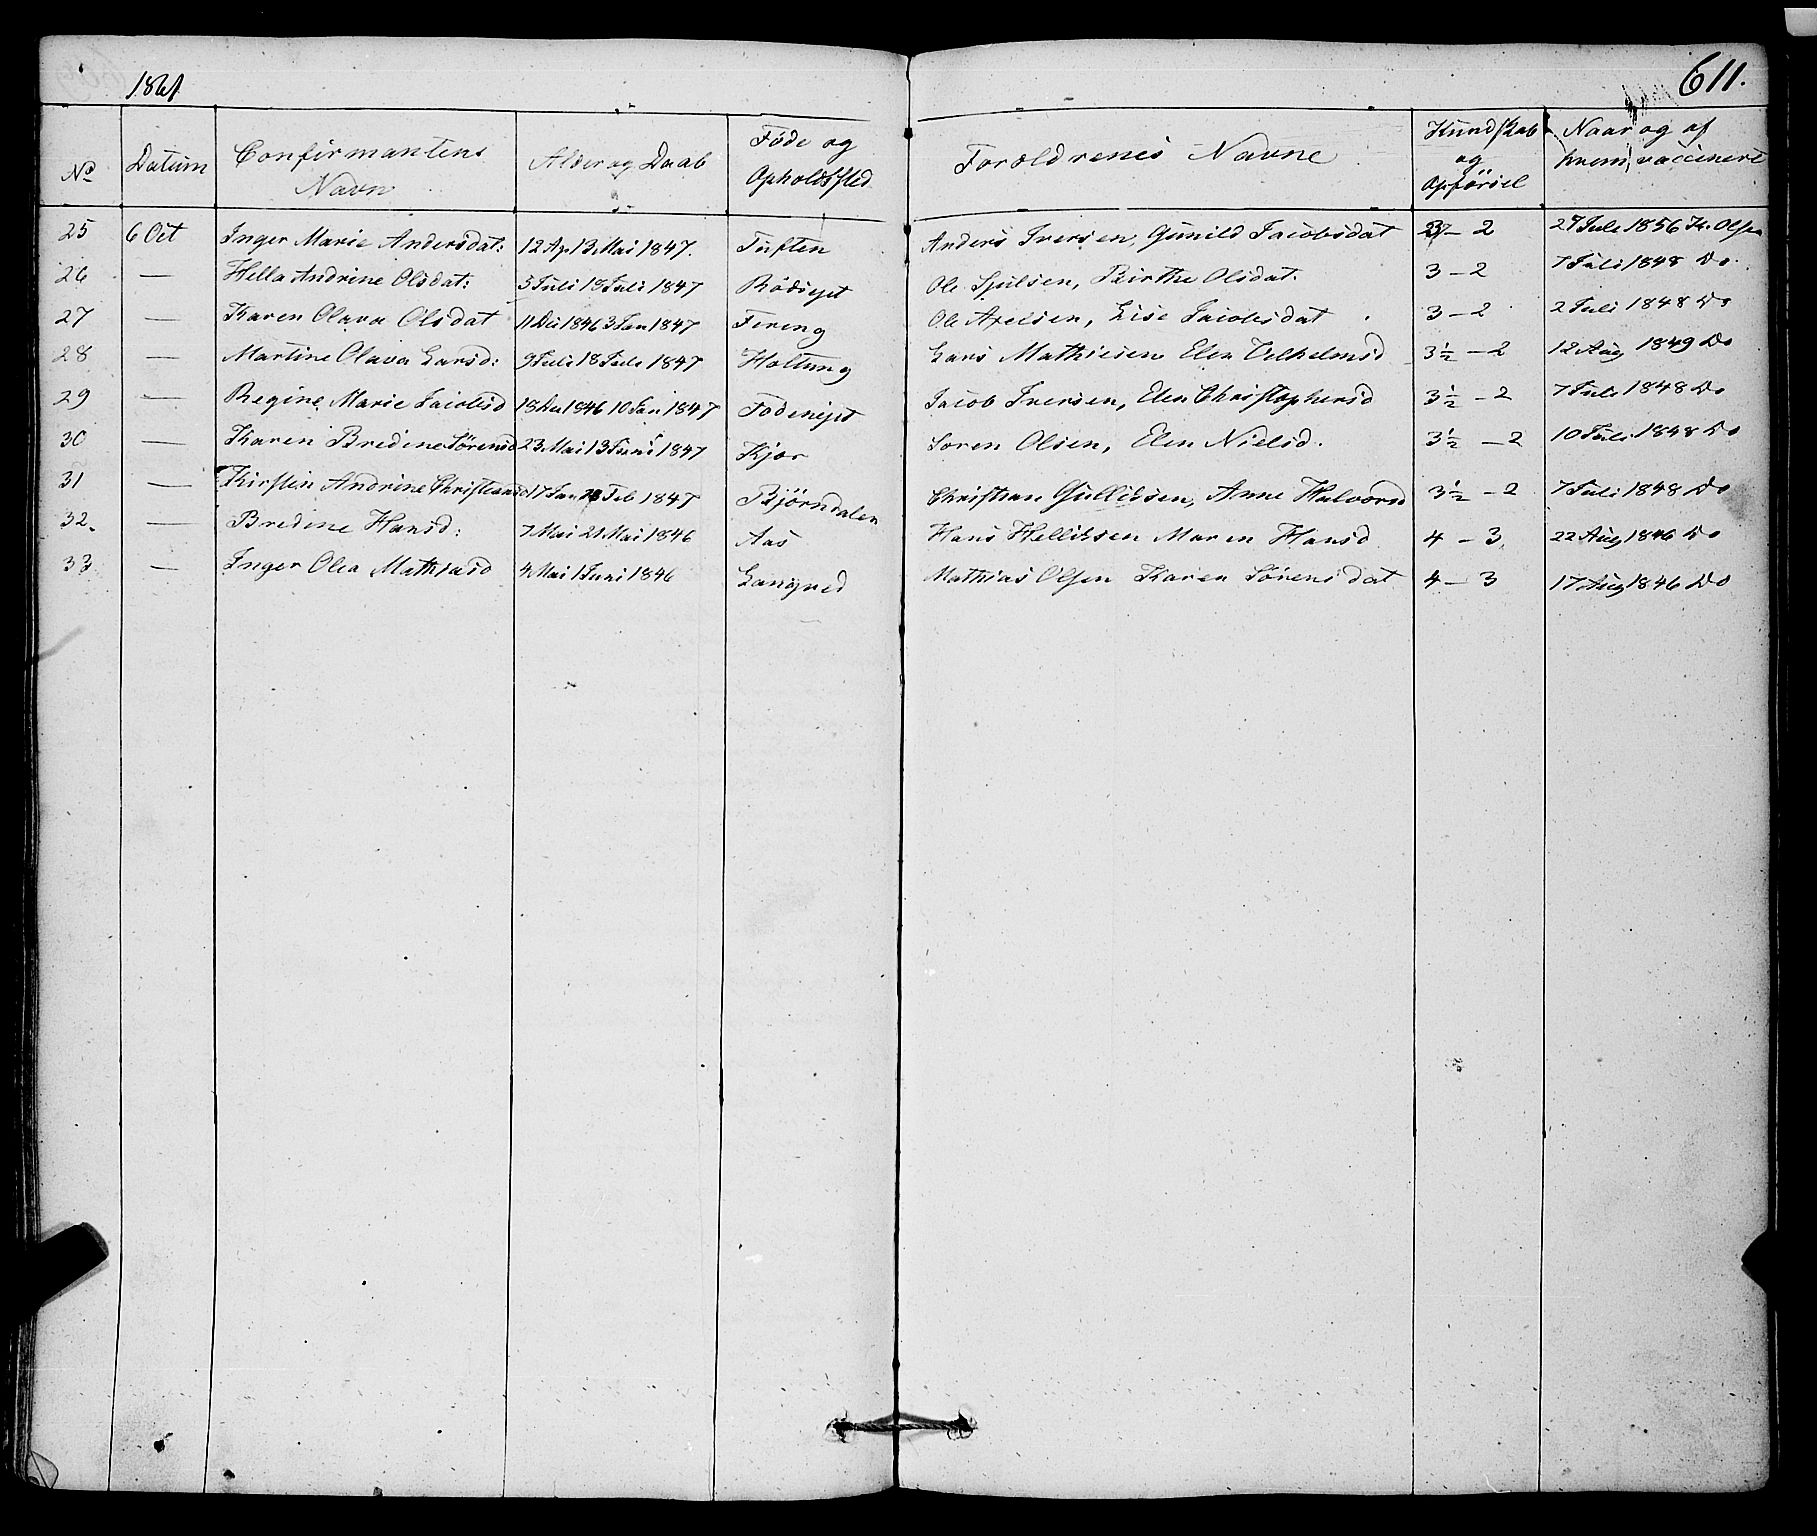 1861
611.
No Datum Confirmantens Navn Alder og Daab Føde og Opholdssted Foroldrenes Navne Kundskab og Opførsel Naar og af hvem vaccinert
25 6 Oct Inger Marie Andersdat: 12 Ap 13 Mai 1847. Tuften Anders Iversen, Gunild Jacobsdat 3 - 2 27 Juli 1856 K. Olsen
26 — Hella Andrine Olsdat: 5 Juli 18 Juli 1847 Rödseiet Ole Birthe Olsdat. 3 - 2 7 Juli 1848 Do.
27 — Karen Olava Olsdat 11 Dec 1846 3 Jan 1847 Ole Axelsen, Lise Jacobsdat 3 - 2 2 Juli 1848 Do
28 — Martine Olava Larsd: 9 Juli 18 Juli 1847 Holtung Lars Mathiesen Elen Vilhelmsd 3½ - 2 12 Aug 1849 Do
29 — Regine Marie Jacobsd 18 Dec 1846 10 Jan 1847 Jacob Iversen, Elen Christophersd 3½ - 2 7 Juli 1848 Do
30 — Karen Bredine Sörensd 23 Mai 13 Juni 1847 Kjær Soren Olsen, Elen Nielsd. 3½ - 2 10 Juli 1848 Do
31 — Kirstin Andrine Christiansd 17 Jan Feb 1847 Björndalen Christian Gulliksen, Anne Halvorsd 3½ - 2 7 Juli 1848 Do
32. — Bredine Hansd: 7 Mai 21 Mai 1846 Aas Hans Helliksen Maren Hansd 4 - 3. 22 Aug 1846 Do
33 — Inger Olea Mathiasd 4 Mai 1 Juni 1846 Langrød Mathias Olsen Karen Sørensdat 4 - 3 17 Aug 1846 Do